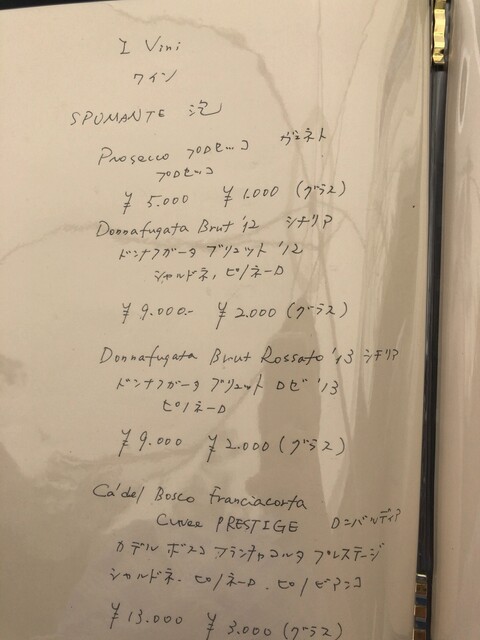 I Vini
ワイン
SPUMANTE 泡
Prosecco プロセッコ ヴェネト
プロセッコ
¥ 5.000 ¥ 1.000 (グラス)
Donnafugata Brut '12 シチリア
ドンナフガータ ブリュット '12
シャルドネ、ピノネーロ
¥ 9.000.- ¥ 2.000 (グラス)
Donnafugata Brut Rossato '13 シチリア
ドンナフガータ ブリュット ロゼ '13
ピノネーロ
¥ 9.000 ¥ 2.000 (グラス)
Ca'del Bosco Franciacorta
Cuvee PRESTIGE ロンバルディア
カデル ボスコ フランチャコルタ プレステージ
シャルドネ、ピノネーロ、ピノビアンコ
¥ 13.000 ¥ 3.000 (グラス)